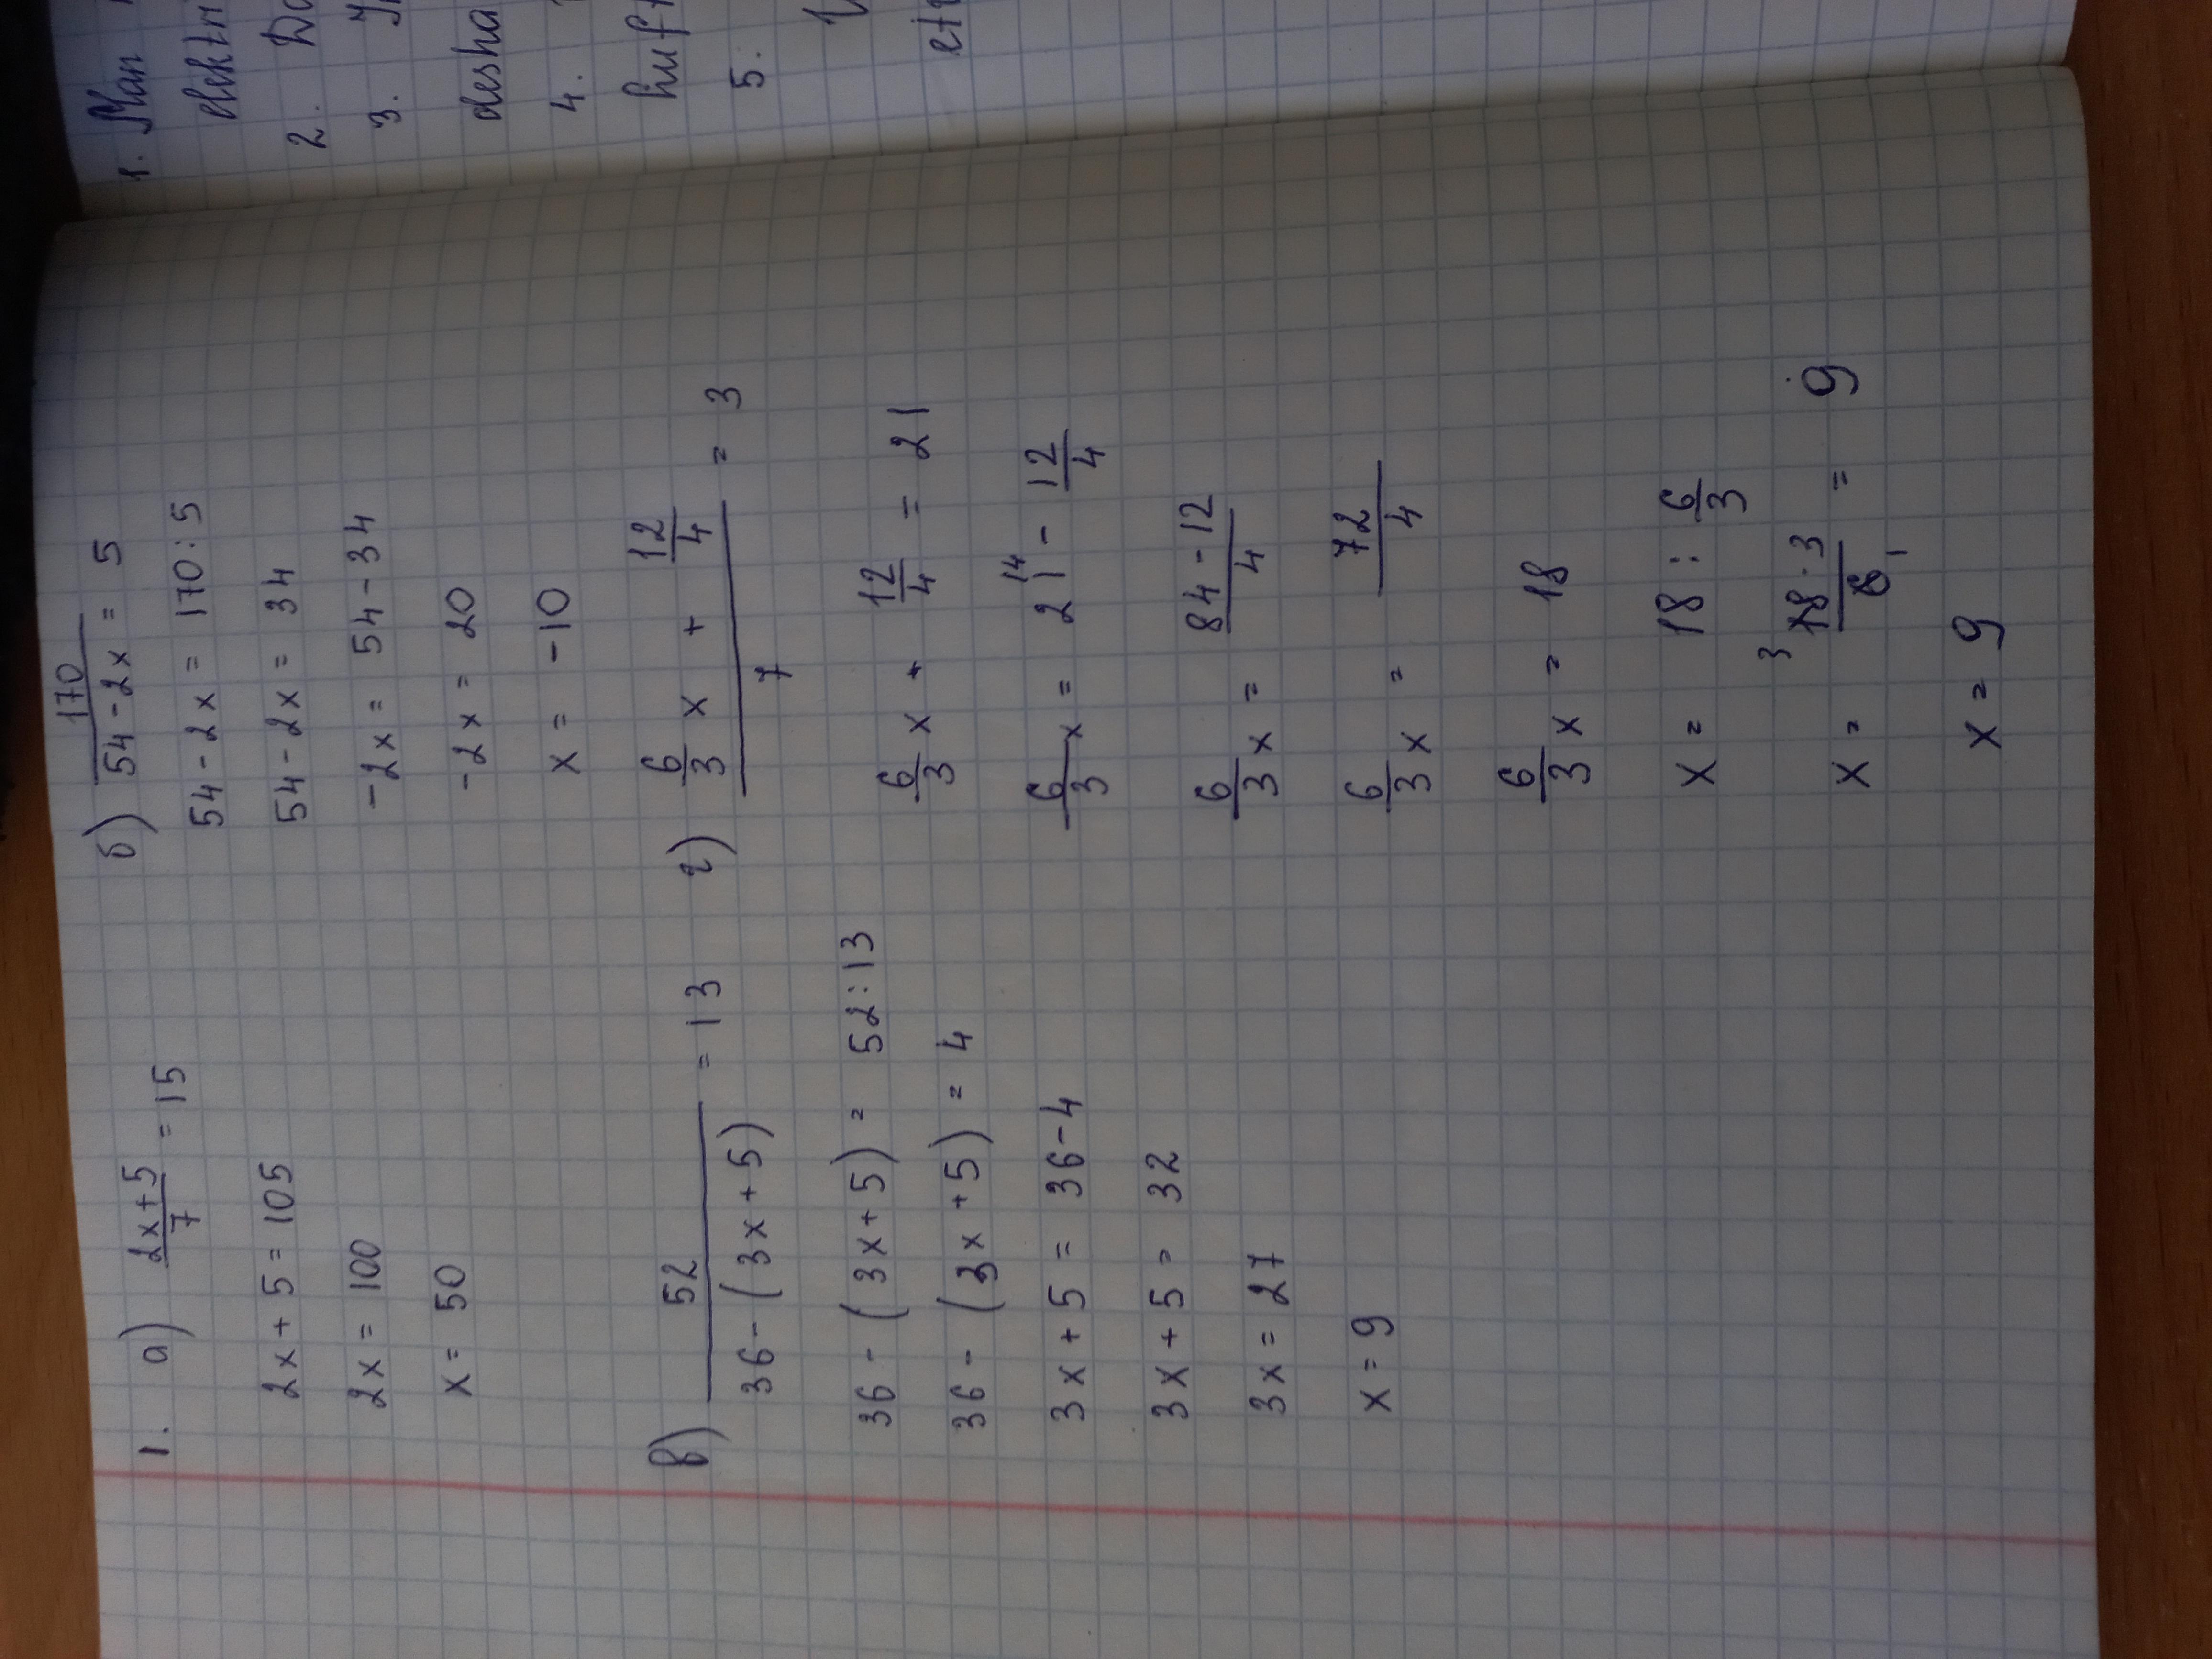 1. a) (2x+5)/7 = 15
2x + 5 = 105
2x = 100
x = 50
б) 170/(54-2x) = 5
54 - 2x = 170 : 5
54 - 2x = 34
-2x = 54 - 34
-2x = 20
x = -10
в) 52/(36 - (3x + 5)) = 13
36 - (3x + 5) = 52 : 13
36 - (3x + 5) = 4
3x + 5 = 36 - 4
3x + 5 = 32
3x = 27
x = 9
г) (6/3 x + 12/4)/7 = 3
6/3 x + 12/4 = 21
6/3 x = 21 14 - 12/4
6/3 x = (84 - 12)/4
6/3 x = 72/4
6/3 x = 18
x = 18 : 6/3
x = 3 18 · 3/6 1 = 9
x = 9
1.
2.
3.
4.
5.